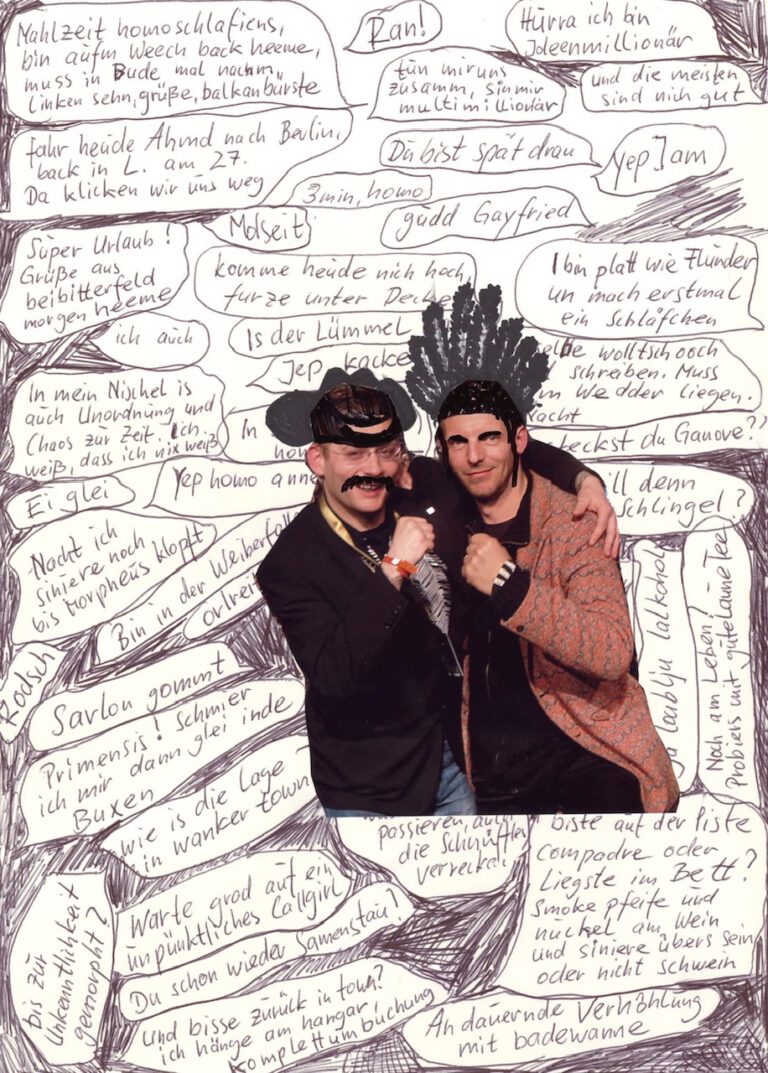 Mahlzeit homoschlafiens,
bin aufm Weech back heeme,
muss in Bude mal nachm
linken sehn, grüße, balkanbürste
Ran!
Hurra ich bin
Jdeenmillionär
tun mir uns
zusamm, sin mir
multimillionär
und die meisten
sind nich gut
fahr heude Ahmd nach Berlin,
back in L. am 27.
Da klicken wir uns weg
Du bist spät dran
Yep I am
3min, homo
Molseit
gudd Gayfried
Super Urlaub!
Grüße aus
beibitterfeld
morgen heeme
komme heude nich hoch,
furze unter Decke
I bin platt wie Flunder
un mach erstmal
ein Schläfchen
ich auch
Is der Lümmel
Jep kacke
wolltsch ooch
schreiben. Muss
wedder liegen.
Nacht
In mein Nischel is
auch Unordnung und
Chaos zur Zeit. Ich
weiß, dass ich nix weiß
In
steckst du Ganove??
Ei glei
Yep homo
denn
Schlingel?
Nacht ich
siniere noch
bis Morpheus klopft
Bin in der
Rodsch
Savlon gommt
Primensis! Schmier
ich mir dann glei inde
Buxen
wie is die Lage
in wanker town
Noch am Leben?
Probiers mit gutelauneTee
passieren, auch
die Schnüffler
biste auf der Piste
compadre oder
Liegste im Bett?
Smoke pfeife und
nuckel am Wein
und siniere übers sein
oder nicht schwein
Bis zur
Unkenntlichkeit
gemorpht?
Warte grad auf ein
unpünktliches Callgirl
Du schon wieder Samenstau?
Und bisse zurück in town?
ich hänge am hangar,
Komplettumbuchung
Andauernde Verhöhlung
mit badewanne